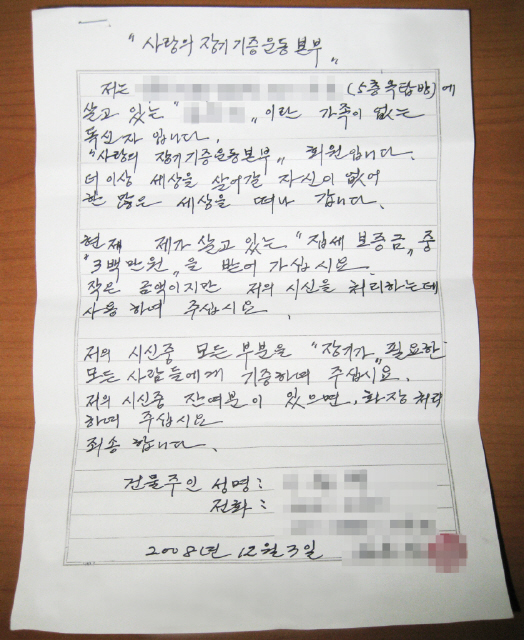 "사랑의 장기기증운동본부"
저는 (5층옥탑방)에
살고 있는 " "이란 가족이 없는
독신자 입니다.
"사랑의 장기기증운동본부" 회원입니다.
더이상 세상을 살아갈 자신이 없어
한 많은 세상을 떠나 갑니다.
현재 제가 살고 있는 "집세 보증금" 중
"3백만원"을 받어 가십시요.
작은 금액이지만 저의 시신을 처리하는데
사용 하여 주십시요.
저의 시신중 모든 부분을 "장기가" 필요한
모든 사람들에게 기증하여 주십시요.
저의 시신중 잔여분이 있으면, 화장처리
하여 주십시요
죄송 합니다.
건물주인 성명:
전화:
2008년 12월 3일